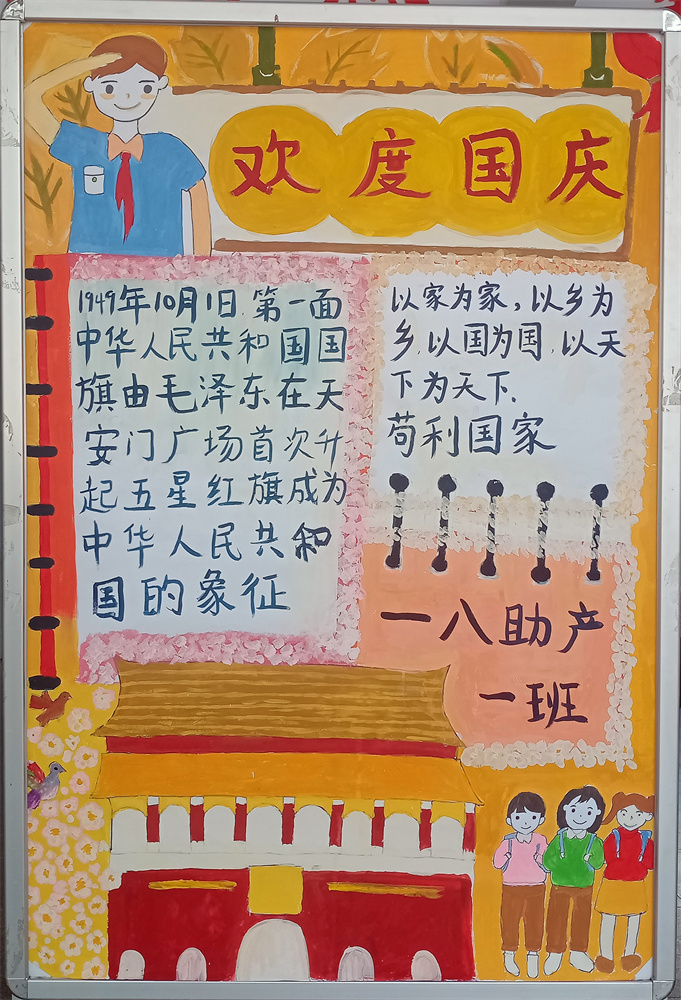 欢度国庆
1949年10月1日.第一面
中华人民共和国国
旗由毛泽东在天
安门广场首次升
起五星红旗成为
中华人民共和
国的象征
以家为家,以乡为
乡.以国为国.以天
下为天下.
苟利国家
一八助产
一班